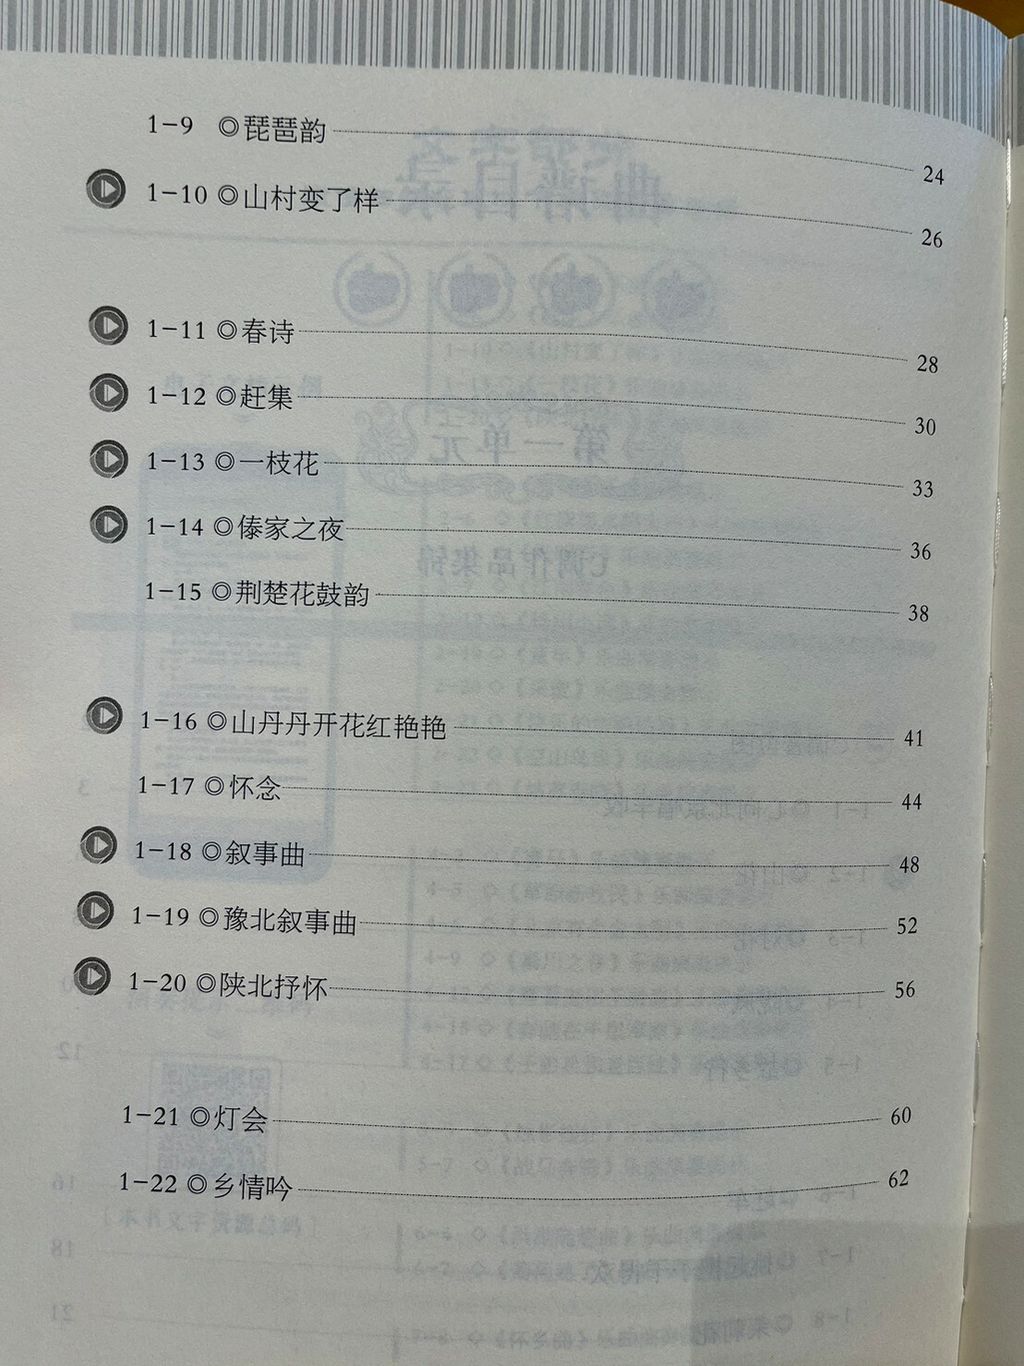 1-9 ◎琵琶韵 24
1-10 ◎山村变了样 26
1-11 ◎春诗 28
1-12 ◎赶集 30
1-13 ◎一枝花 33
1-14 ◎傣家之夜 36
1-15 ◎荆楚花鼓韵 38
1-16 ◎山丹丹开花红艳艳 41
1-17 ◎怀念 44
1-18 ◎叙事曲 48
1-19 ◎豫北叙事曲 52
1-20 ◎陕北抒怀 56
1-21 ◎灯会 60
1-22 ◎乡情吟 62